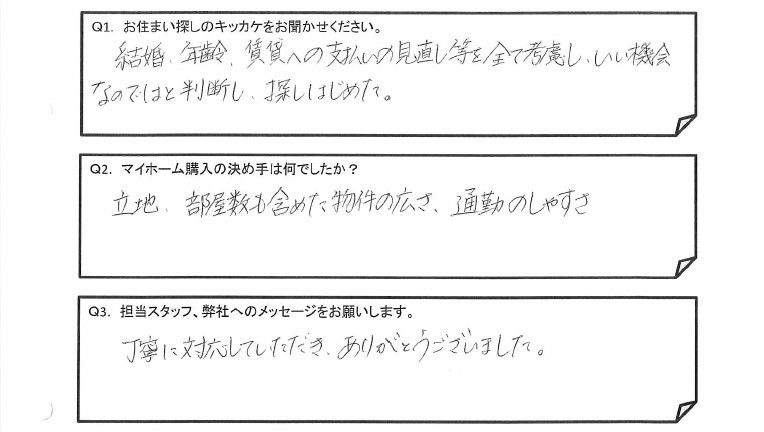 Q1. お住まい探しのキッカケをお聞かせください。
結婚、年齢、賃貸への支払いの見直し等を全て考慮し、いい機会
なのではと判断し、探しはじめた。
Q2. マイホーム購入の決め手は何でしたか？
立地、部屋数も含めた物件の広さ、通勤のしやすさ
Q3. 担当スタッフ、弊社へのメッセージをお願いします。
丁寧に対応していただき、ありがとうございました。